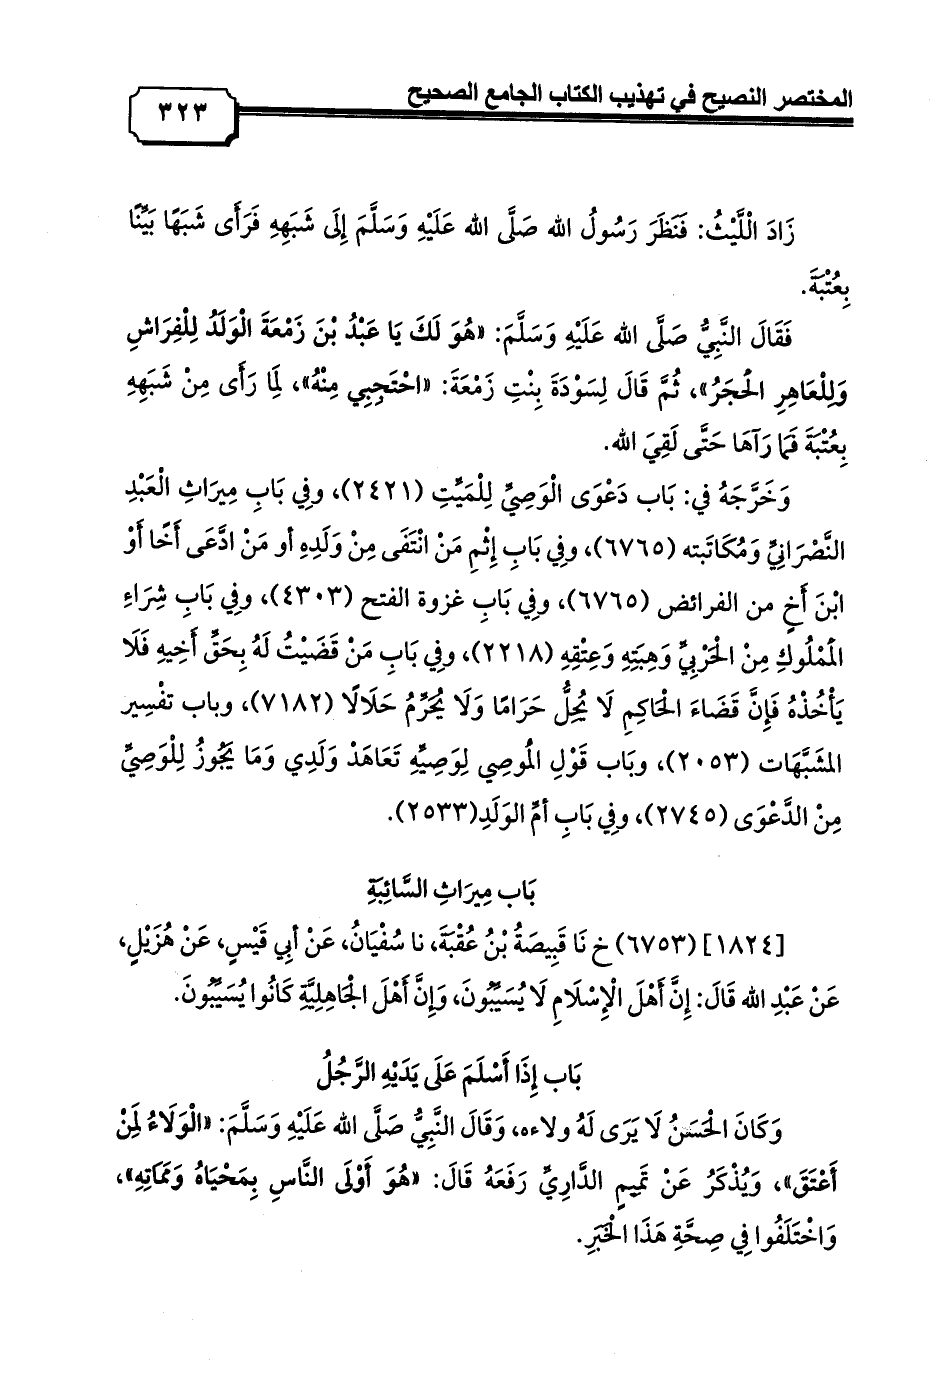 المختصر النصيح في تهذيب الكتاب الجامع الصحيح
٣٢٣
زَادَ اللَّيْثُ: فَنَظَرَ رَسُولُ الله صَلَّى الله عَلَيْهِ وَسَلَّمَ إِلَى شَبَهِهِ فَرَأَى شَبَهًا بَيِّنًا
بِعُتْبَةَ.
فَقَالَ النَّبِيُّ صَلَّى الله عَلَيْهِ وَسَلَّمَ: «هُوَ لَكَ يَا عَبْدُ بْنَ زَمْعَةَ الْوَلَدُ لِلْفِرَاشِ
وَلِلْعَاهِرِ الْحَجَرُ»، ثُمَّ قَالَ لِسَوْدَةَ بِنْتِ زَمْعَةَ: «احْتَجِبِي مِنْهُ»، لِمَا رَأَى مِنْ شَبَهِهِ
بِعُتْبَةَ فَمَا رَآهَا حَتَّى لَقِيَ الله.
وَخَرَّجَهُ فِي: بَاب دَعْوَى الْوَصِيِّ لِلْمَيِّتِ (٢٤٢١)، وفِي بَابِ مِيرَاثِ الْعَبْدِ
النَّصْرَانِيِّ وَمُكَاتَبته (٦٧٦٥)، وفِي بَابِ إِثْمِ مَنْ انْتَفَى مِنْ وَلَدِهِ أو مَنْ ادَّعَى أَخًا أَوْ
ابْنَ أَخٍ من الفرائض (٦٧٦٥)، وفِي بَابِ غزوة الفتح (٤٣٠٣)، وفِي بَابِ شِرَاءِ
الْمَمْلُوكِ مِنْ الْحَرْبِيِّ وَهِبَتِهِ وَعِتْقِهِ (٢٢١٨)، وفِي بَابِ مَنْ قَضَيْتُ لَهُ بِحَقِّ أَخِيهِ فَلَا
يَأْخُذْهُ فَإِنَّ قَضَاءَ الْحَاكِمِ لَا يُحِلُّ حَرَامًا وَلَا يُحَرِّمُ حَلَالًا (٧١٨٢)، وباب تفْسِير
المشَبَّهَات (٢٠٥٣)، وبَاب قَوْلِ الْمُوصِي لِوَصِيِّهِ تَعَاهَدْ وَلَدِي وَمَا يَجُوزُ لِلْوَصِيِّ
مِنْ الدَّعْوَى (٢٧٤٥)، وفِي بَابِ أمِّ الوَلَدِ(٢٥٣٣).
بَاب مِيرَاثِ السَّائِبَةِ
[١٨٢٤] (٦٧٥٣) خ نَا قَبِيصَةُ بْنُ عُقْبَةَ، نا سُفْيَانُ، عَنْ أبِي قَيْسٍ، عَنْ هُزَيْلٍ،
عَنْ عَبْدِ الله قَالَ: إِنَّ أَهْلَ الْإِسْلَامِ لَا يُسَيِّبُونَ، وَإِنَّ أَهْلَ الْجَاهِلِيَّةِ كَانُوا يُسَيِّبُونَ.
بَاب إِذَا أَسْلَمَ عَلَى يَدَيْهِ الرَّجُلُ
وَكَانَ الْحَسَنُ لَا يَرَى لَهُ ولاءه، وَقَالَ النَّبِيُّ صَلَّى الله عَلَيْهِ وَسَلَّمَ: «الْوَلَاءُ لِمَنْ
أَعْتَقَ»، وَيُذْكَرُ عَنْ تَمِيمٍ الدَّارِيِّ رَفَعَهُ قَالَ: «هُوَ أَوْلَى النَّاسِ بِمَحْيَاهُ وَمَمَاتِهِ»،
وَاخْتَلَفُوا فِي صِحَّةِ هَذَا الْخَبَرِ.